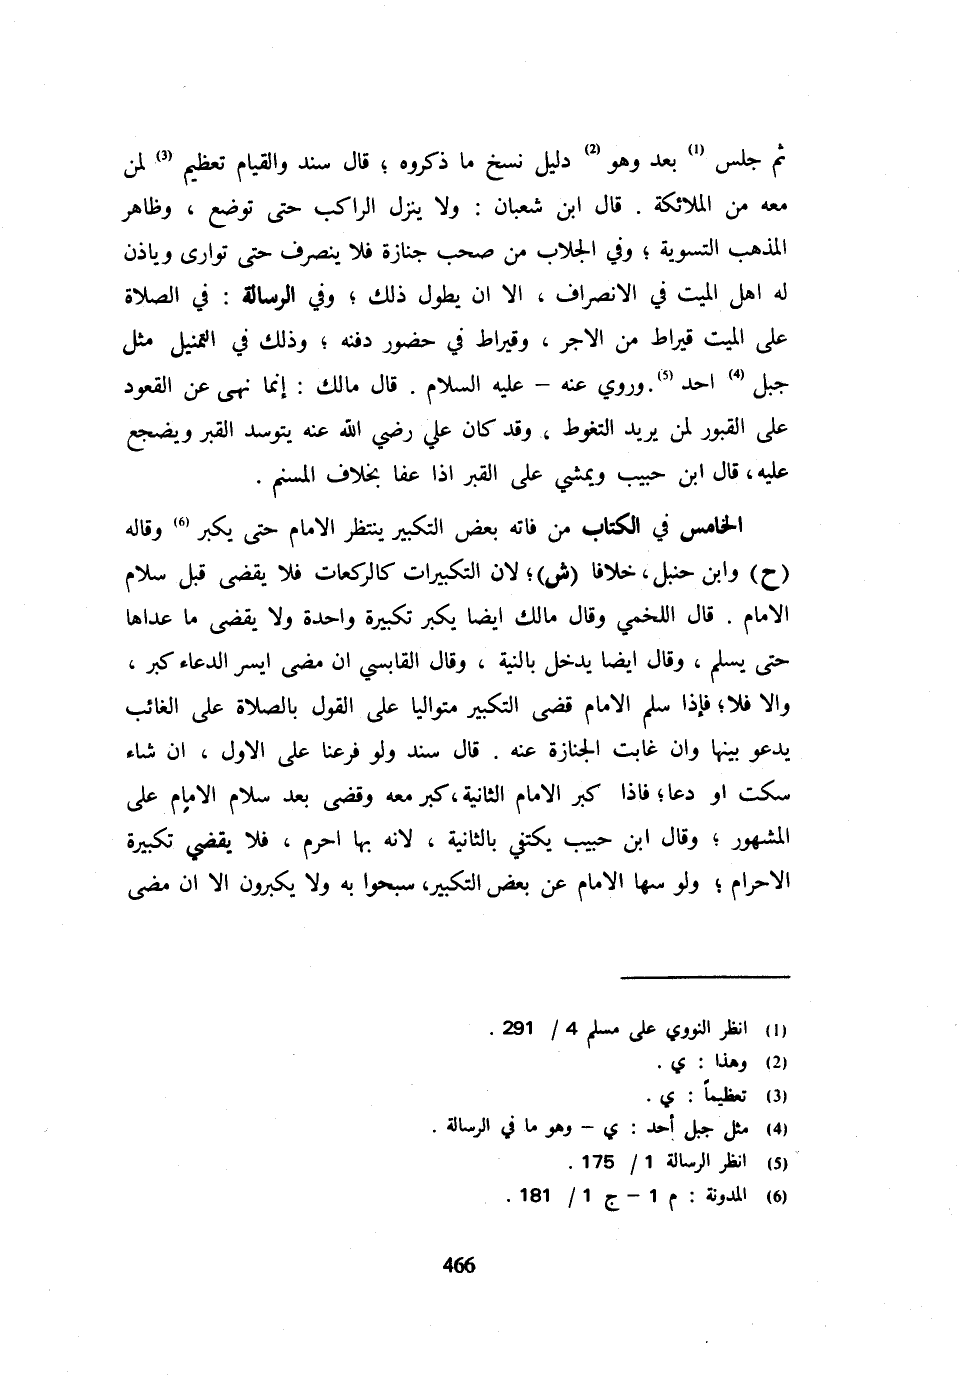 ثم جلس (1) بعد وهو (2) دليل نسخ ما ذكروه ؛ قال سند والقيام تعظيم (3) لمن
معه من الملائكة . قال ابن شعبان : ولا ينزل الراكب حتى توضع ، وظاهر
المذهب التسوية ؛ وفي الجلاب من صحب جنازة فلا ينصرف حتى توارى وياذن
له اهل الميت في الانصراف ، الا ان يطول ذلك ؛ وفي الرسالة : في الصلاة
على الميت قيراط من الاجر ، وقيراط في حضور دفنه ؛ وذلك في التمثيل مثل
جبل (4) احد (5) . وروي عنه – عليه السلام . قال مالك : إنما نهى عن القعود
على القبور لمن يريد التغوط ، وقد كان علي رضي الله عنه يتوسد القبر ويضجع
عليه ، قال ابن حبيب ويمشي على القبر اذا عفا بخلاف المسنم .
الخامس في الكتاب من فاته بعض التكبير ينتظر الامام حتى يكبر (6) وقاله
(ح) وابن حنبل ، خلافا (ش) ؛ لان التكبيرات كالركعات فلا يقضى قبل سلام
الامام . قال اللخمي وقال مالك ايضا يكبر تكبيرة واحدة ولا يقضى ما عداها
حتى يسلم ، وقال ايضا يدخل بالنية ، وقال القابسي ان مضى ايسر الدعاء كبر ،
والا فلا؛ فإذا سلم الامام قضى التكبير متواليا على القول بالصلاة على الغائب
يدعو بينها وان غابت الجنازة عنه . قال سند ولو فرعنا على الاول ، ان شاء
سكت او دعا؛ فاذا كبر الامام الثانية ، كبر معه وقضى بعد سلام الامام على
المشهور ؛ وقال ابن حبيب يكتفي بالثانية ، لانه بها احرم ، فلا يقضي تكبيرة
الاحرام ؛ ولو سها الامام عن بعض التكبير، سبحوا به ولا يكبرون الا ان مضى
(1) انظر النووي على مسلم 4 / 291 .
(2) وهذا : ي .
(3) تعظيماً : ي .
(4) مثل جبل أحد : ي – وهو ما في الرسالة .
(5) انظر الرسالة 1 / 175 .
(6) المدونة : م 1 – ج 1 / 181 .
466